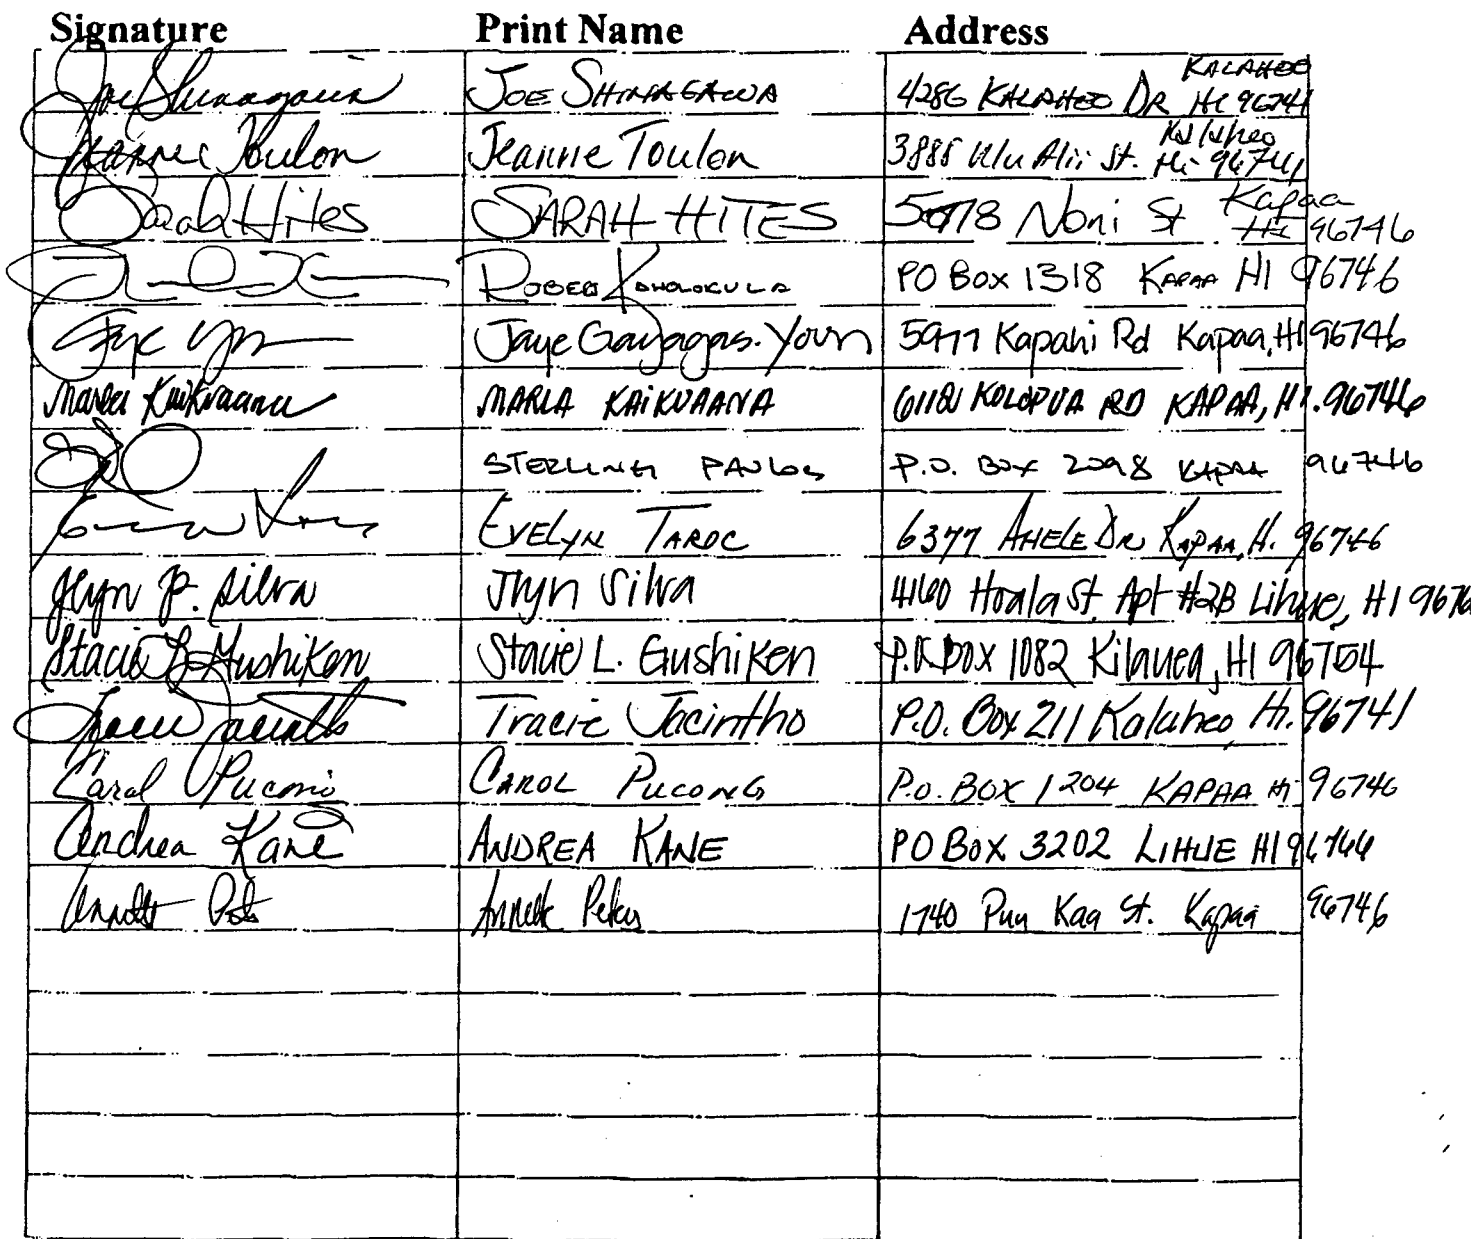 Signature Print Name Address
Joe Shinagawa JOE SHINAGAWA 4286 KALAHEO DR KALAHEO HI 96741
Jeanne Toulon Jeannie Toulon 3885 Ulu Alii St. Kalaheo Hi 96741
Sarah Hites SARAH HITES 5078 Noni St Kapaa HI 96746
PO Box 1318 KAPAA HI 96746
Jaye Gayagas-Youn 5977 Kapahi Rd Kapaa, HI 96746
MARLA KAIKUAANA 6118 KOLOPUA RD KAPAA, HI. 96746
STERLING P.O. Box 2098 KAPAA 96746
EVELYN TAROC 6377 AHELE DR KAPAA, HI. 96746
Jlyn P. Silva Jlyn Silva 4160 Hoala St. Apt #2B Lihue, HI
Stacie L. Gushiken Stacie L. Gushiken P.O. BOX 1082 Kilauea, HI 96754
Tracie Jacintho Tracie Jacintho P.O. Box 211 Kalaheo, Hi. 96741
Carol CAROL PUCONG P.O. BOX 1204 KAPAA HI 96746
Andrea Kane ANDREA KANE PO BOX 3202 LIHUE HI 96766
Annette 1740 Puu Kaa St. Kapaa 96746